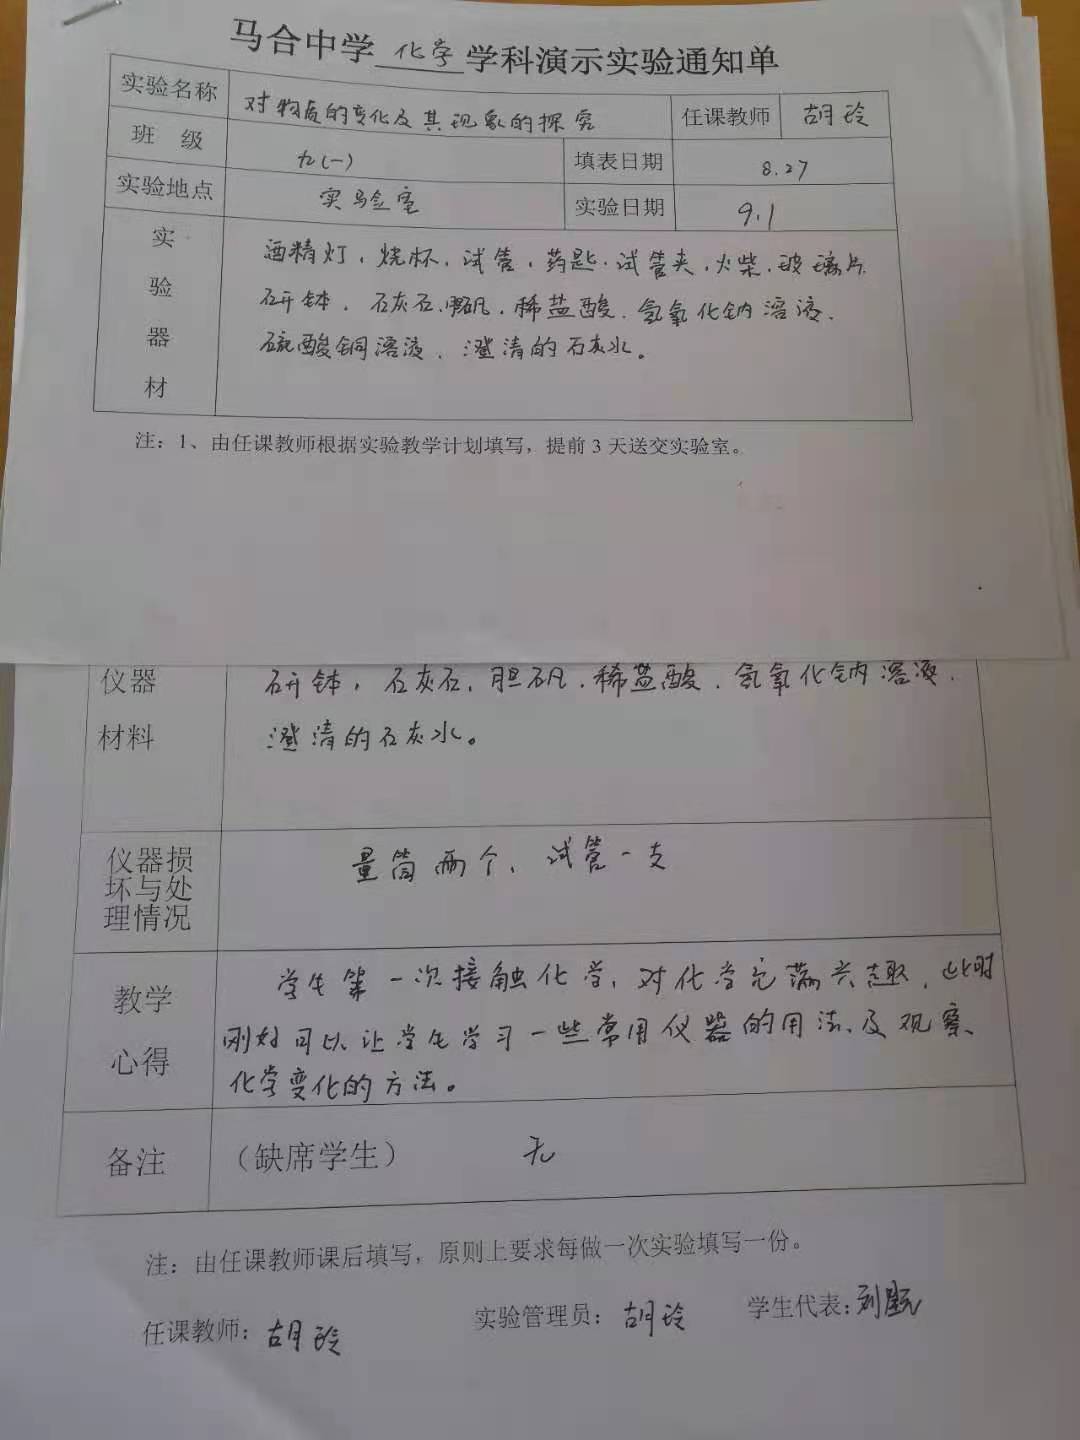 马合中学 化学 学科演示实验通知单
实验名称 对物质的变化及其现象的探究 任课教师 胡玲
班 级 九(一) 填表日期 8.27
实验地点 实验室 实验日期 9.1
实验器材 酒精灯、烧杯、试管、药匙、试管夹、火柴、玻璃片
研钵、石灰石、胆矾、稀盐酸、氢氧化钠溶液、
硫酸铜溶液、澄清的石灰水。
注：1、由任课教师根据实验教学计划填写，提前 3 天送交实验室。
仪器 研钵，石灰石，胆矾、稀盐酸、氢氧化钠溶液、
材料 澄清的石灰水。
仪器损
坏与处 量筒两个、试管一支
理情况
教学 学生第一次接触化学，对化学充满兴趣，此时
刚好可以让学生学习一些常用仪器的用法、及观察、
心得 化学变化的方法。
备注 （缺席学生） 无
注：由任课教师课后填写，原则上要求每做一次实验填写一份。
任课教师：胡玲 实验管理员：胡玲 学生代表：刘